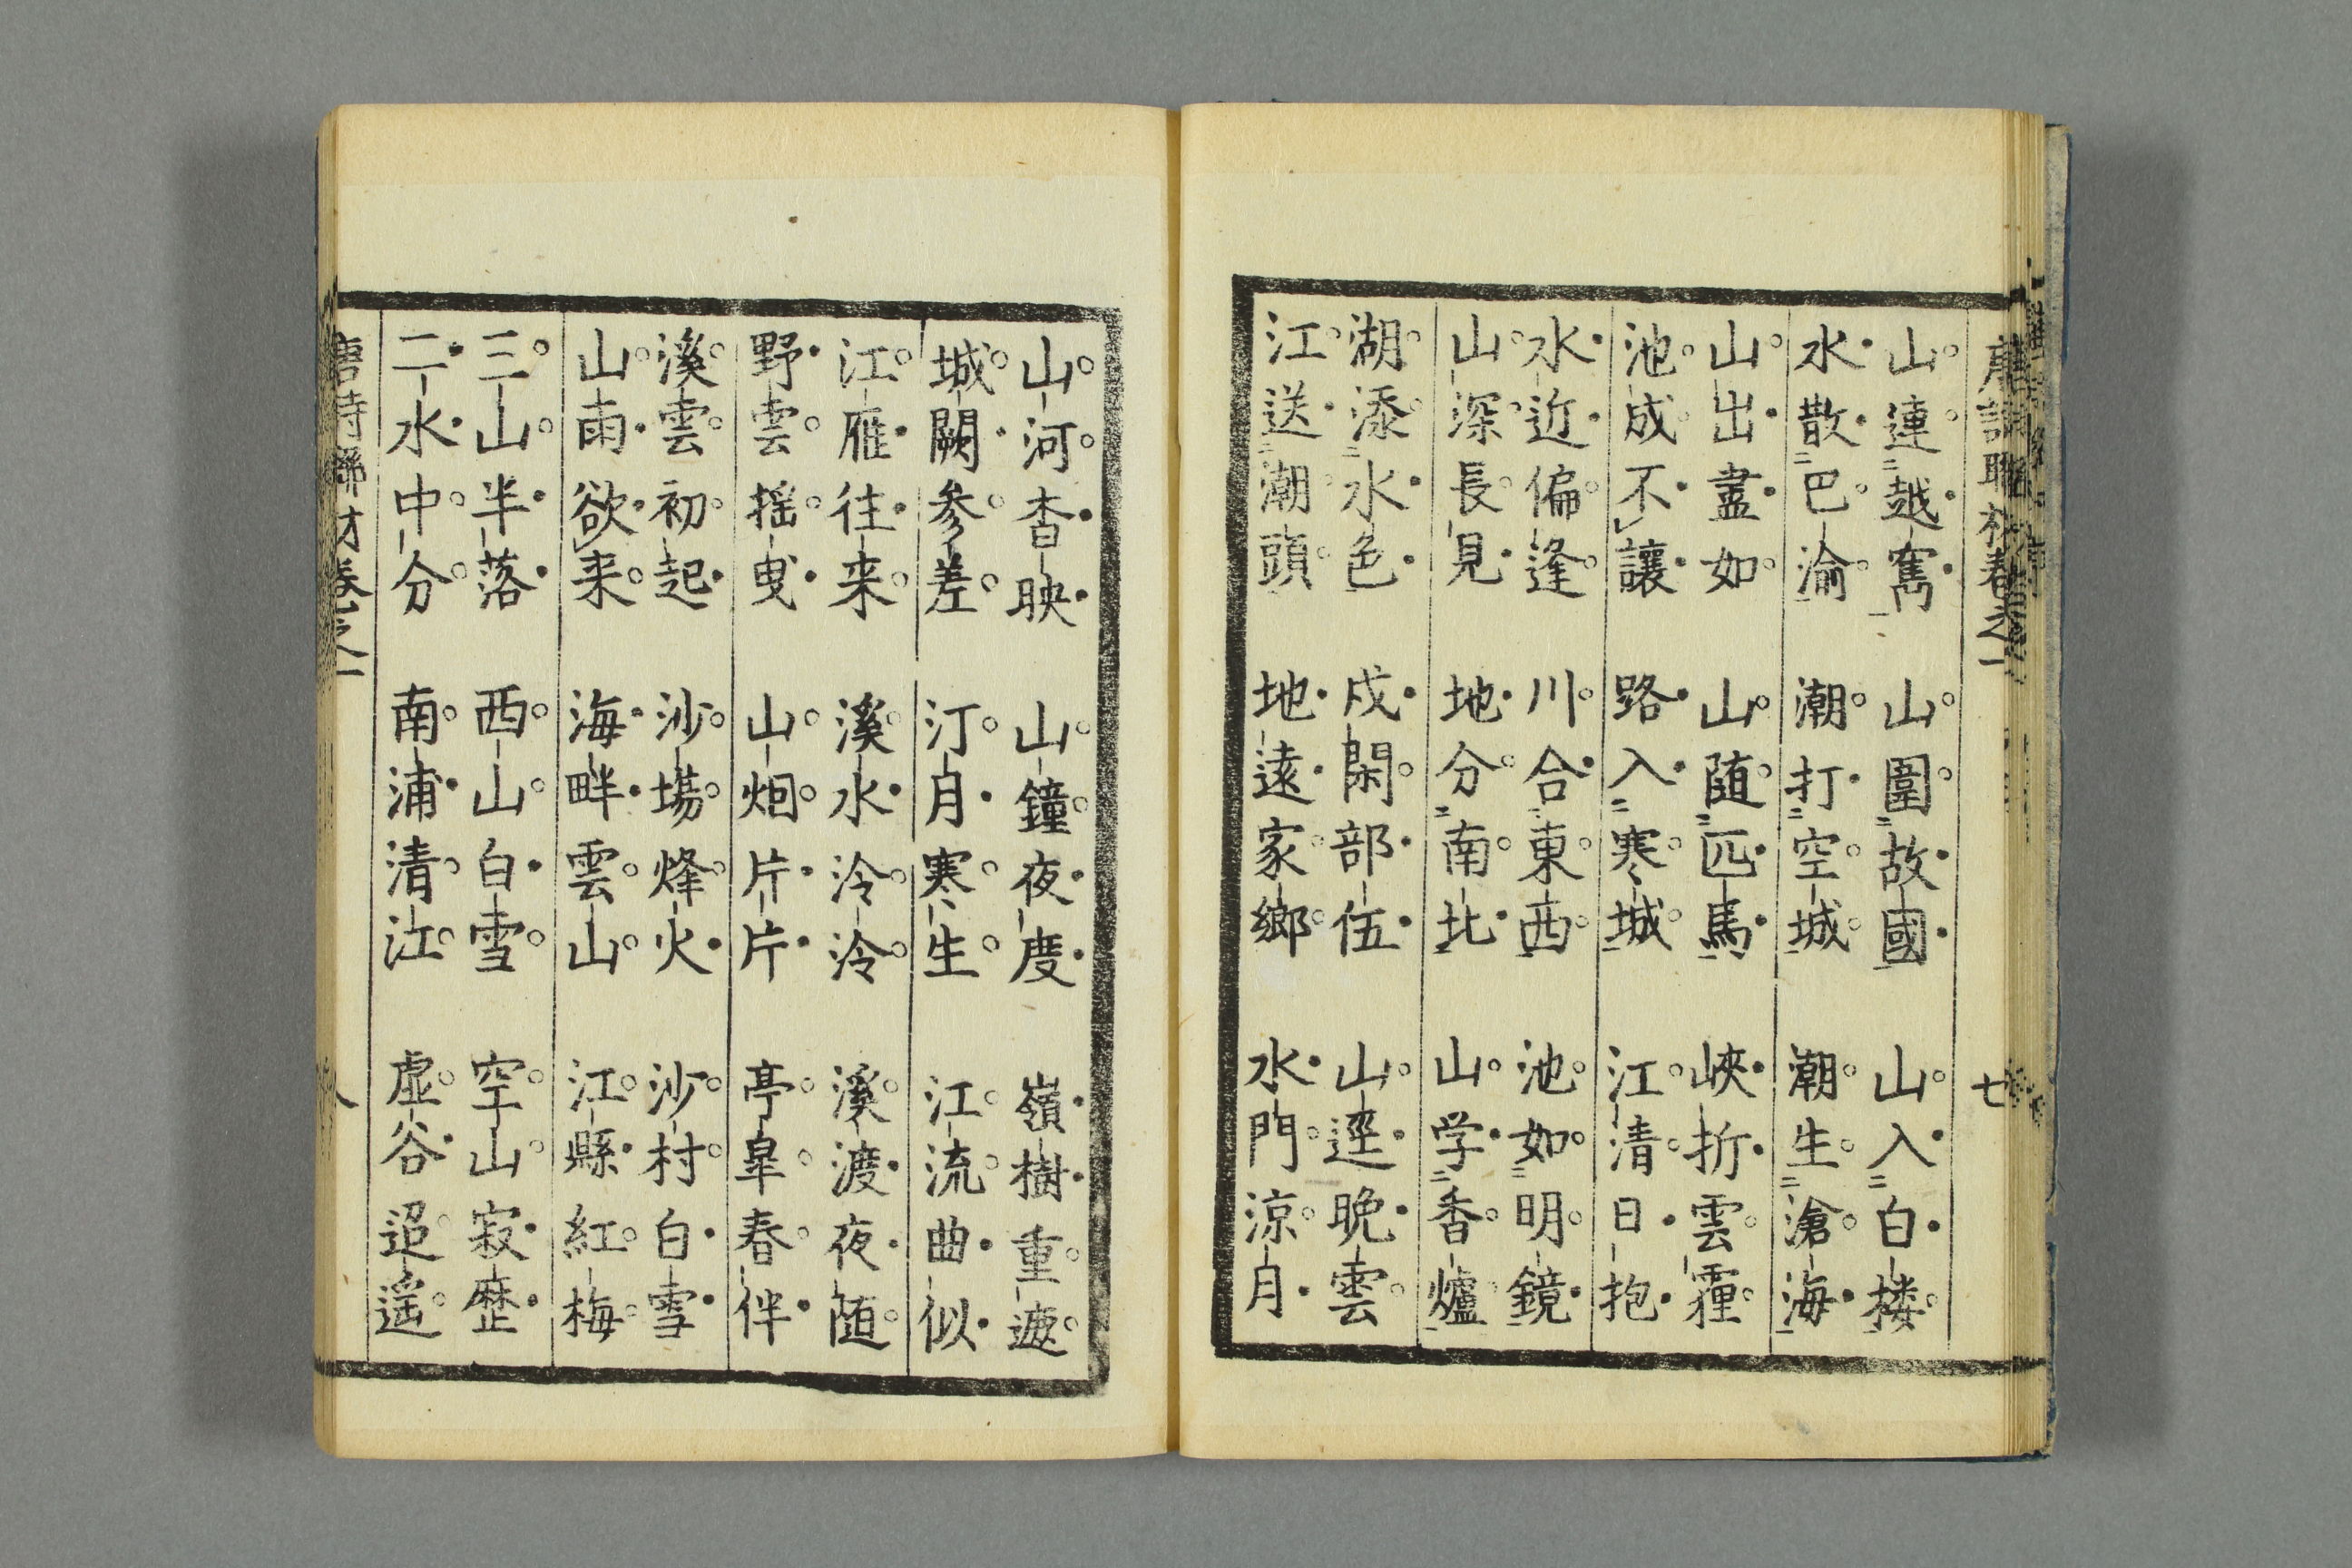 唐詩聯材卷之一
七
山連越嶲 山圍故國 山入白楼
水散巴渝 潮打空城 潮生滄海
山出盡如 山随匹馬 峽折雲霾
池成不讓 路入寒城 江清日抱
水近偏逢 川合東西 池如明鏡
山深長見 地分南北 山学香爐
湖添水色 戍閑部伍 山逕晚雲
江送潮頭 地遠家鄉 水門涼月
山河杳映 山鐘夜度 嶺樹重遮
城闕参差 汀月寒生 江流曲似
江雁往来 溪水泠泠 溪渡夜随
野雲揺曳 山烟片片 亭皐春伴
溪雲初起 沙場烽火 沙村白雪
山雨欲来 海畔雲山 江縣紅梅
三山半落 西山白雪 空山寂歴
二水中分 南浦清江 虚谷迢遥
唐詩聯材卷之一